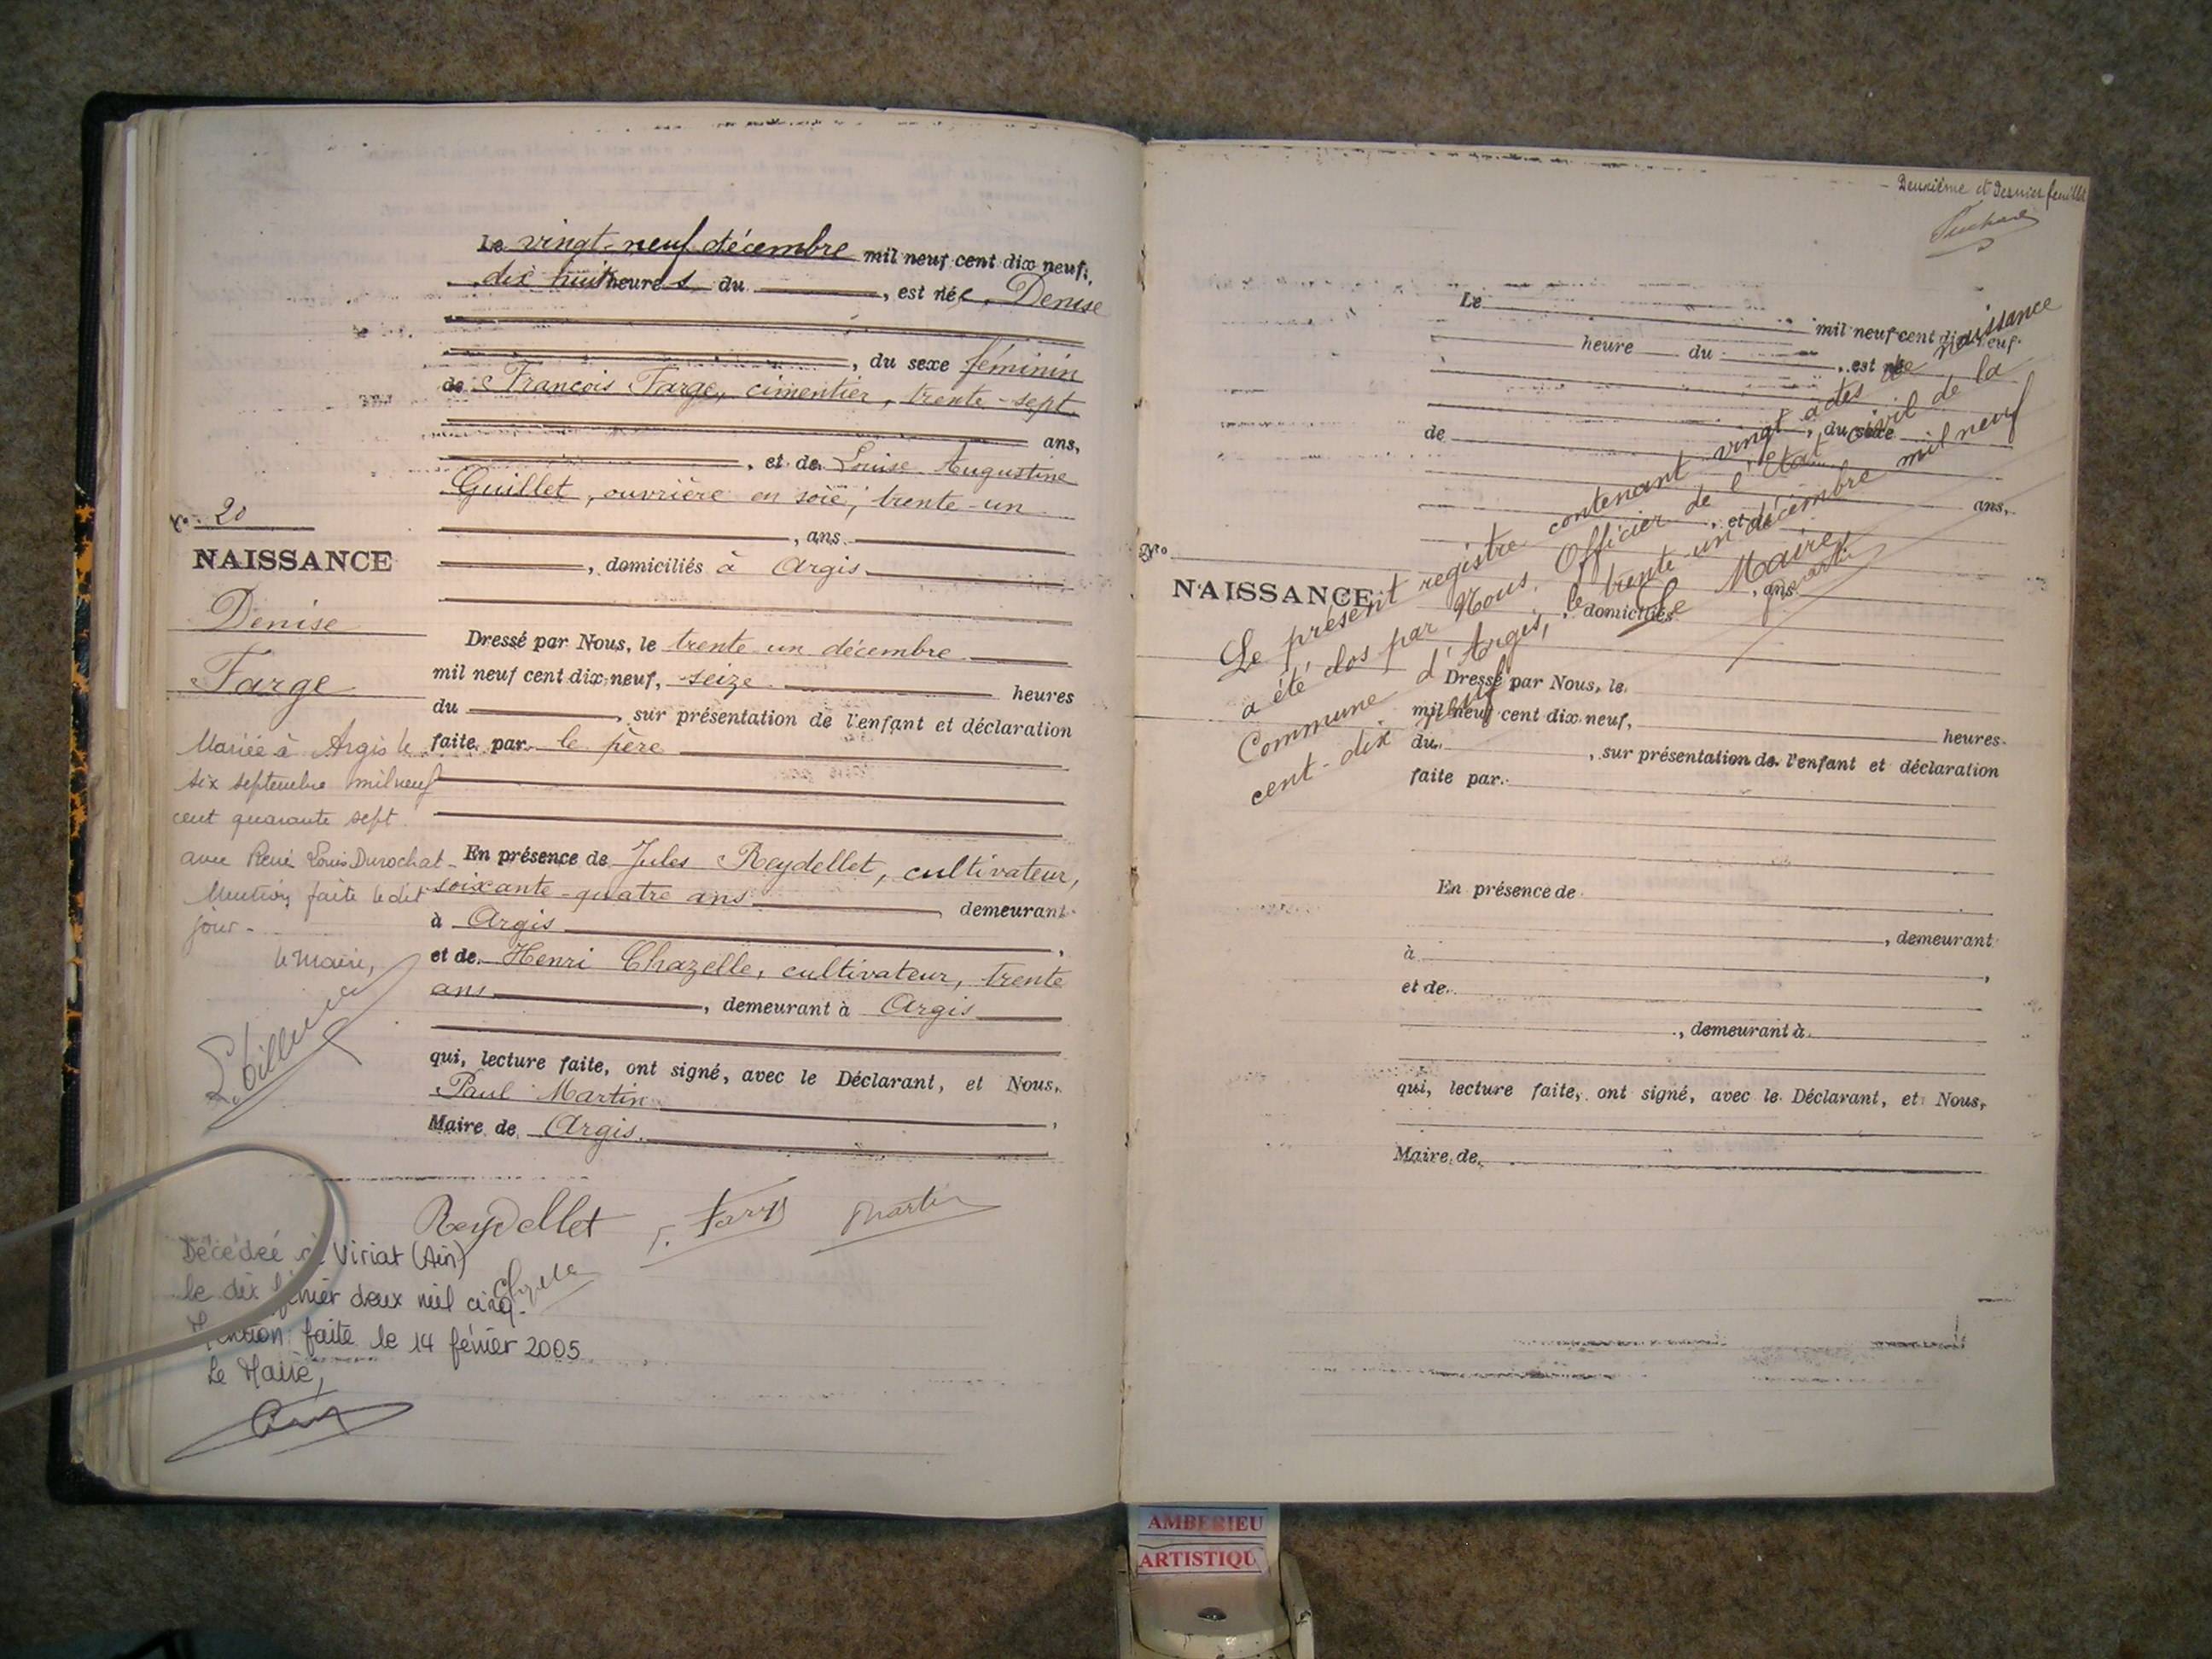 Le vingt-neuf décembre mil neuf cent dix neuf,
dix huit heures du , est née, Denise
, du sexe féminin
de François Farge, cimentier, trente-sept
ans,
, et de Louise Augustine
Guillet, ouvrière en soie, trente-un
, ans
, domiciliés à Argis
Dressé par Nous, le trente-un décembre
mil neuf cent dix-neuf, seize heures
du , sur présentation de l'enfant et déclaration
faite par le père
En présence de Jules Reydellet, cultivateur,
soixante-quatre ans demeurant
à Argis ,
et de Henri Chazelle, cultivateur, trente
ans , demeurant à Argis
qui, lecture faite, ont signé, avec le Déclarant, et Nous,
Paul Martin ,
Maire de Argis.
Reydellet F. Farge Martin
Chazelle
No 20
NAISSANCE
Denise
Farge
Mariée à Argis le
six septembre mil neuf
cent quarante sept
avec René Louis Durochat
Mention faite le dit
jour.
le Maire,
Décédée à Viriat (Ain)
le dix février deux mil cinq.
Mention faite le 14 février 2005
Le Maire,
Deuxième et Dernier feuillet
Le mil neuf cent dix neuf.
heure du , est né
, du sexe
de
ans,
, et de
No
NAISSANCE
, ans
, domiciliés
Le présent registre contenant vingt actes de naissance
a été clos par Nous, Officier de l'Etat civil de la
Commune d'Argis, le trente-un décembre mil neuf
cent-dix neuf
Le Maire,
Martin
Dressé par Nous, le
mil neuf cent dix neuf, heures
du , sur présentation de l'enfant et déclaration
faite par
En présence de
, demeurant
à ,
et de
, demeurant à
qui, lecture faite, ont signé, avec le Déclarant, et Nous,
Maire de
AMBERIEU
ARTISTIQU